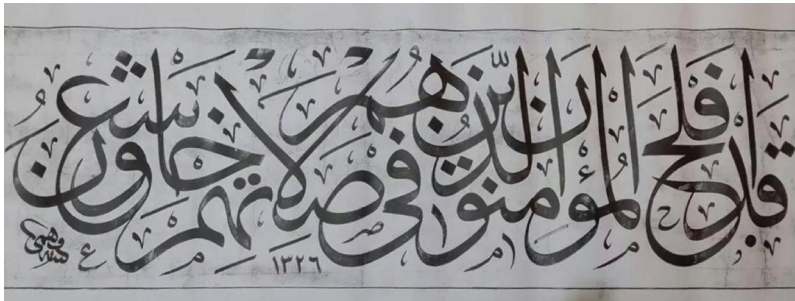 قد أفلح المؤمنون الذين هم في صلاتهم خاشعون
١٣٢٦